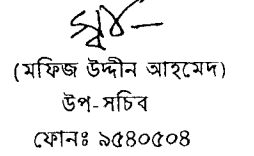 স্বাঃ-
(মফিজ উদ্দীন আহমেদ)
উপ-সচিব
ফোনঃ ৯৫৪০৫০৪